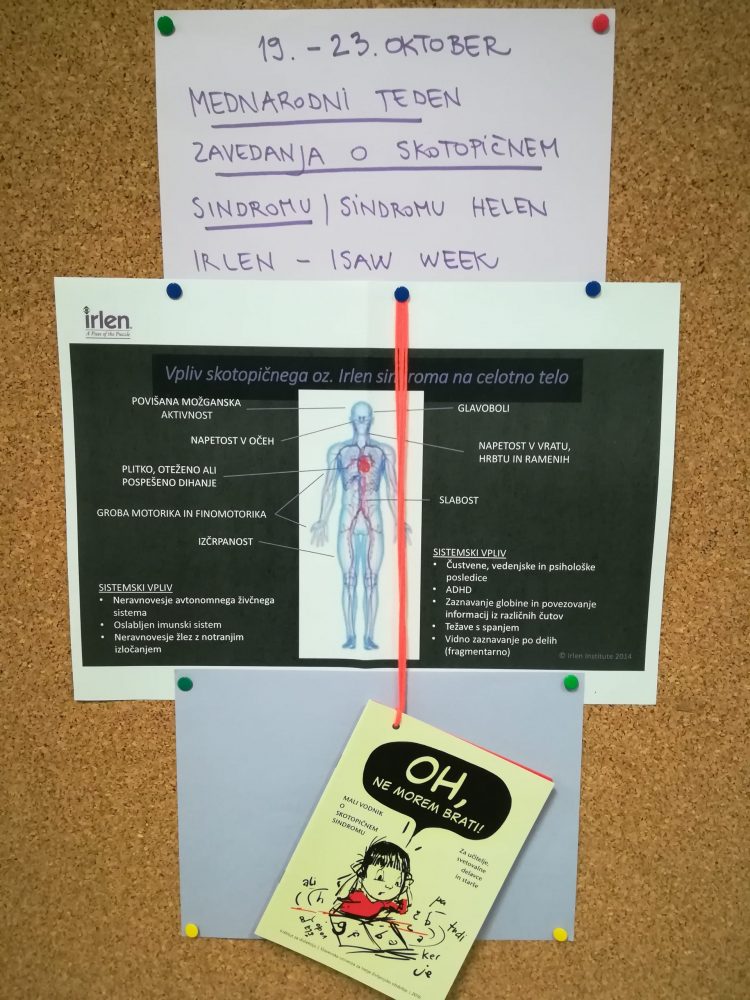 19. - 23. OKTOBER
MEDNARODNI TEDEN
ZAVEDANJA O SKOTOPIČNEM
SINDROMU / SINDROMU HELEN
IRLEN - ISAW WEEK
irlen
A Piece of the Puzzle
Vpliv skotopičnega oz. Irlen sindroma na celotno telo
POVIŠANA MOŽGANSKA
AKTIVNOST
NAPETOST V OČEH
PLITKO, OTEŽENO ALI
POSPEŠENO DIHANJE
GROBA MOTORIKA IN FINOMOTORIKA
IZČRPANOST
GLAVOBOLI
NAPETOST V VRATU,
HRBTU IN RAMENIH
SLABOST
SISTEMSKI VPLIV
• Neravnovesje avtonomnega živčnega
sistema
• Oslabljen imunski sistem
• Neravnovesje žlez z notranjim
izločanjem
SISTEMSKI VPLIV
• Čustvene, vedenjske in psihološke
posledice
• ADHD
• Zaznavanje globine in povezovanje
informacij iz različnih čutov
• Težave s spanjem
• Vidno zaznavanje po delih
(fragmentarno)
© Irlen Institute 2014
OH,
NE MOREM BRATI!
MALI VODNIK
O
SKOTOPIČNEM
SINDROMU
Za učitelje,
svetovalne
delavce
in starše
ali
h
pa
z b
tudi
g f b a
ker
je